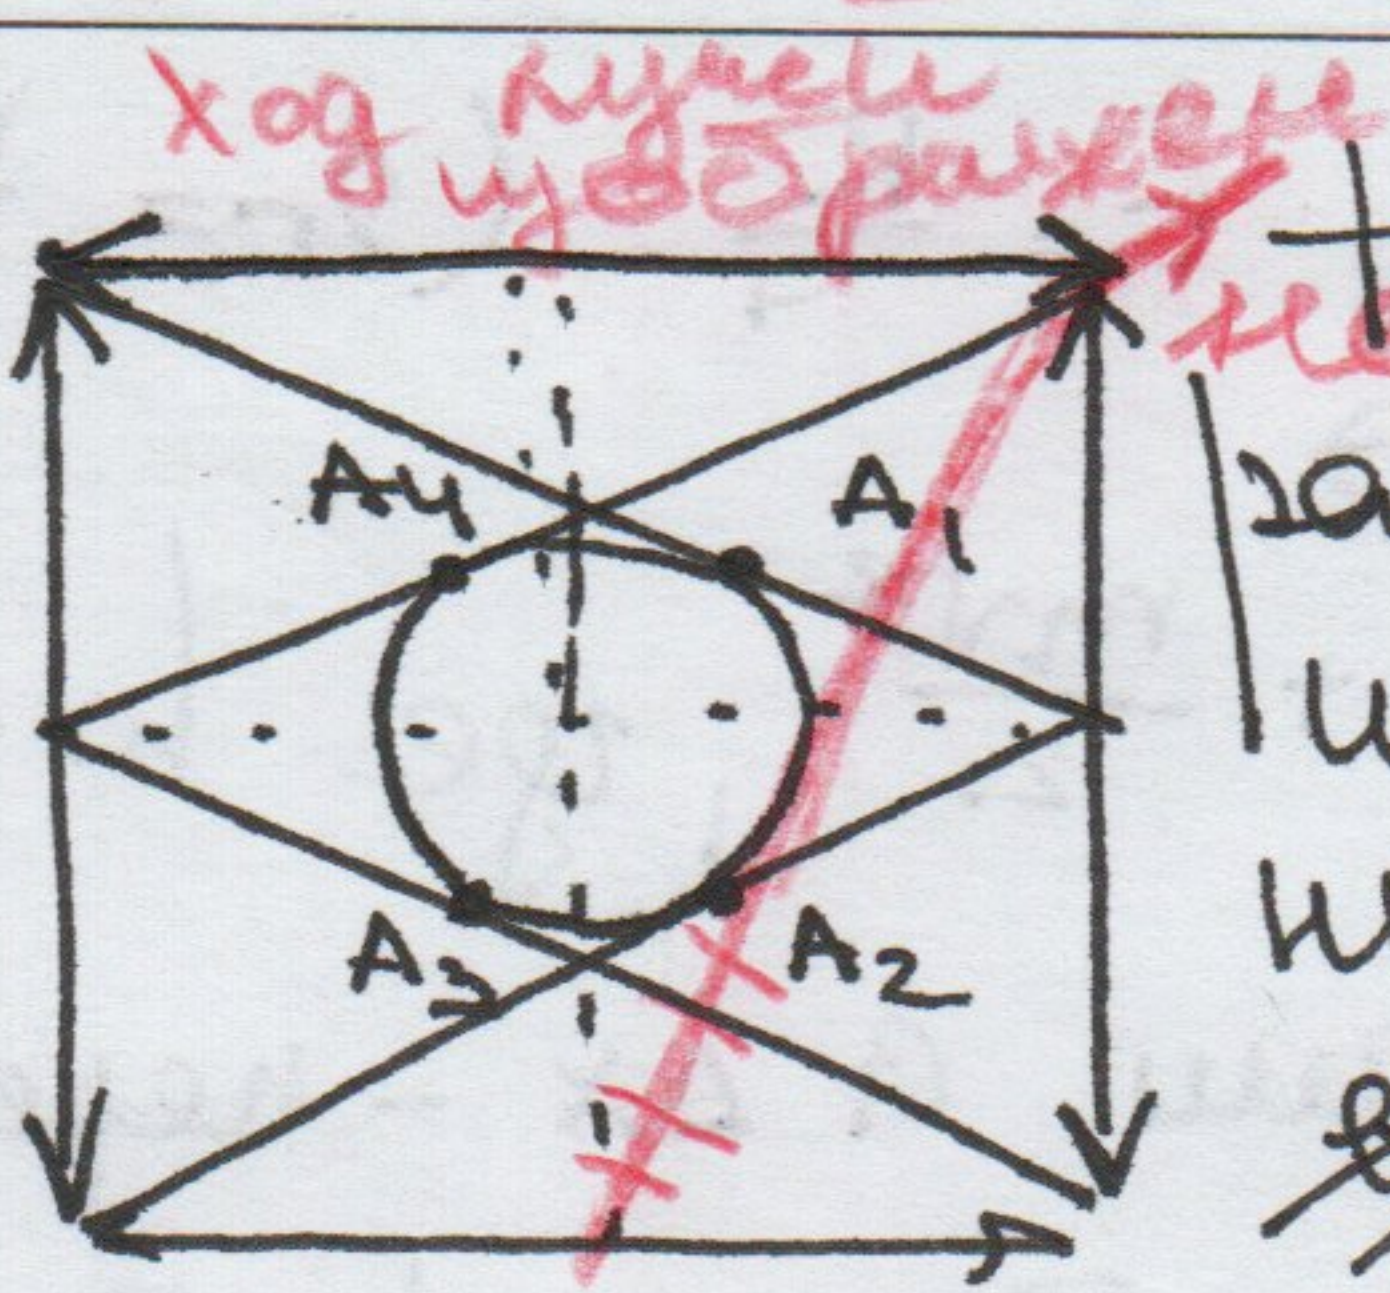 ход лучей
изображен
не
A4
A1
за
и
A3
A2